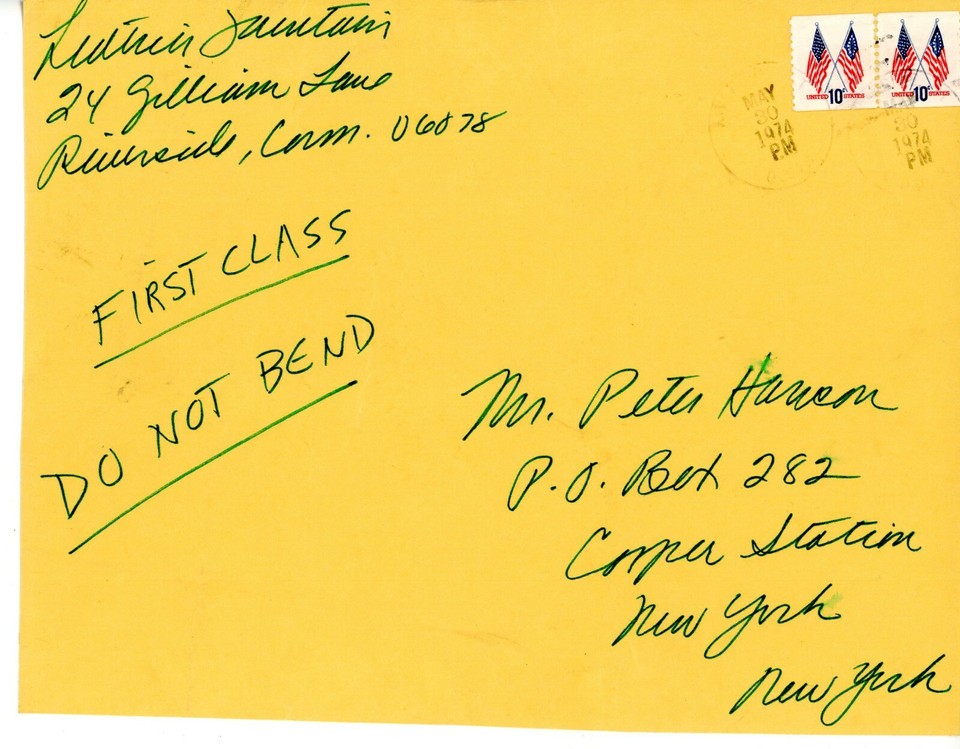 24 Gilliam Lane
Riverside, Conn. 06878
UNITED 10c STATES
UNITED 10c STATES
MAY
30
1974
PM
MAY
30
1974
PM
FIRST CLASS
DO NOT BEND
Mr. Peter Hanson
P.O. Box 282
Cooper Station
New York
New York